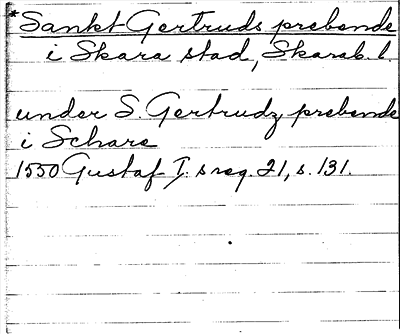 *Sankt Gertruds prebende
i Skara stad, Skarab. l.
under S. Gertrudz prebende
i Schare
1550 Gustaf I:s reg. 21, s. 131.